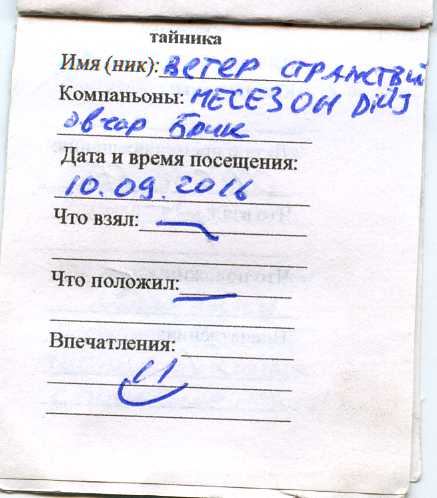 тайника
Имя (ник): ВЕТЕР СТРАНСТВИЙ
Компаньоны: МЕСЕЗОН
Брик
Дата и время посещения:
10.09.2016
Что взял:
Что положил:
Впечатления: